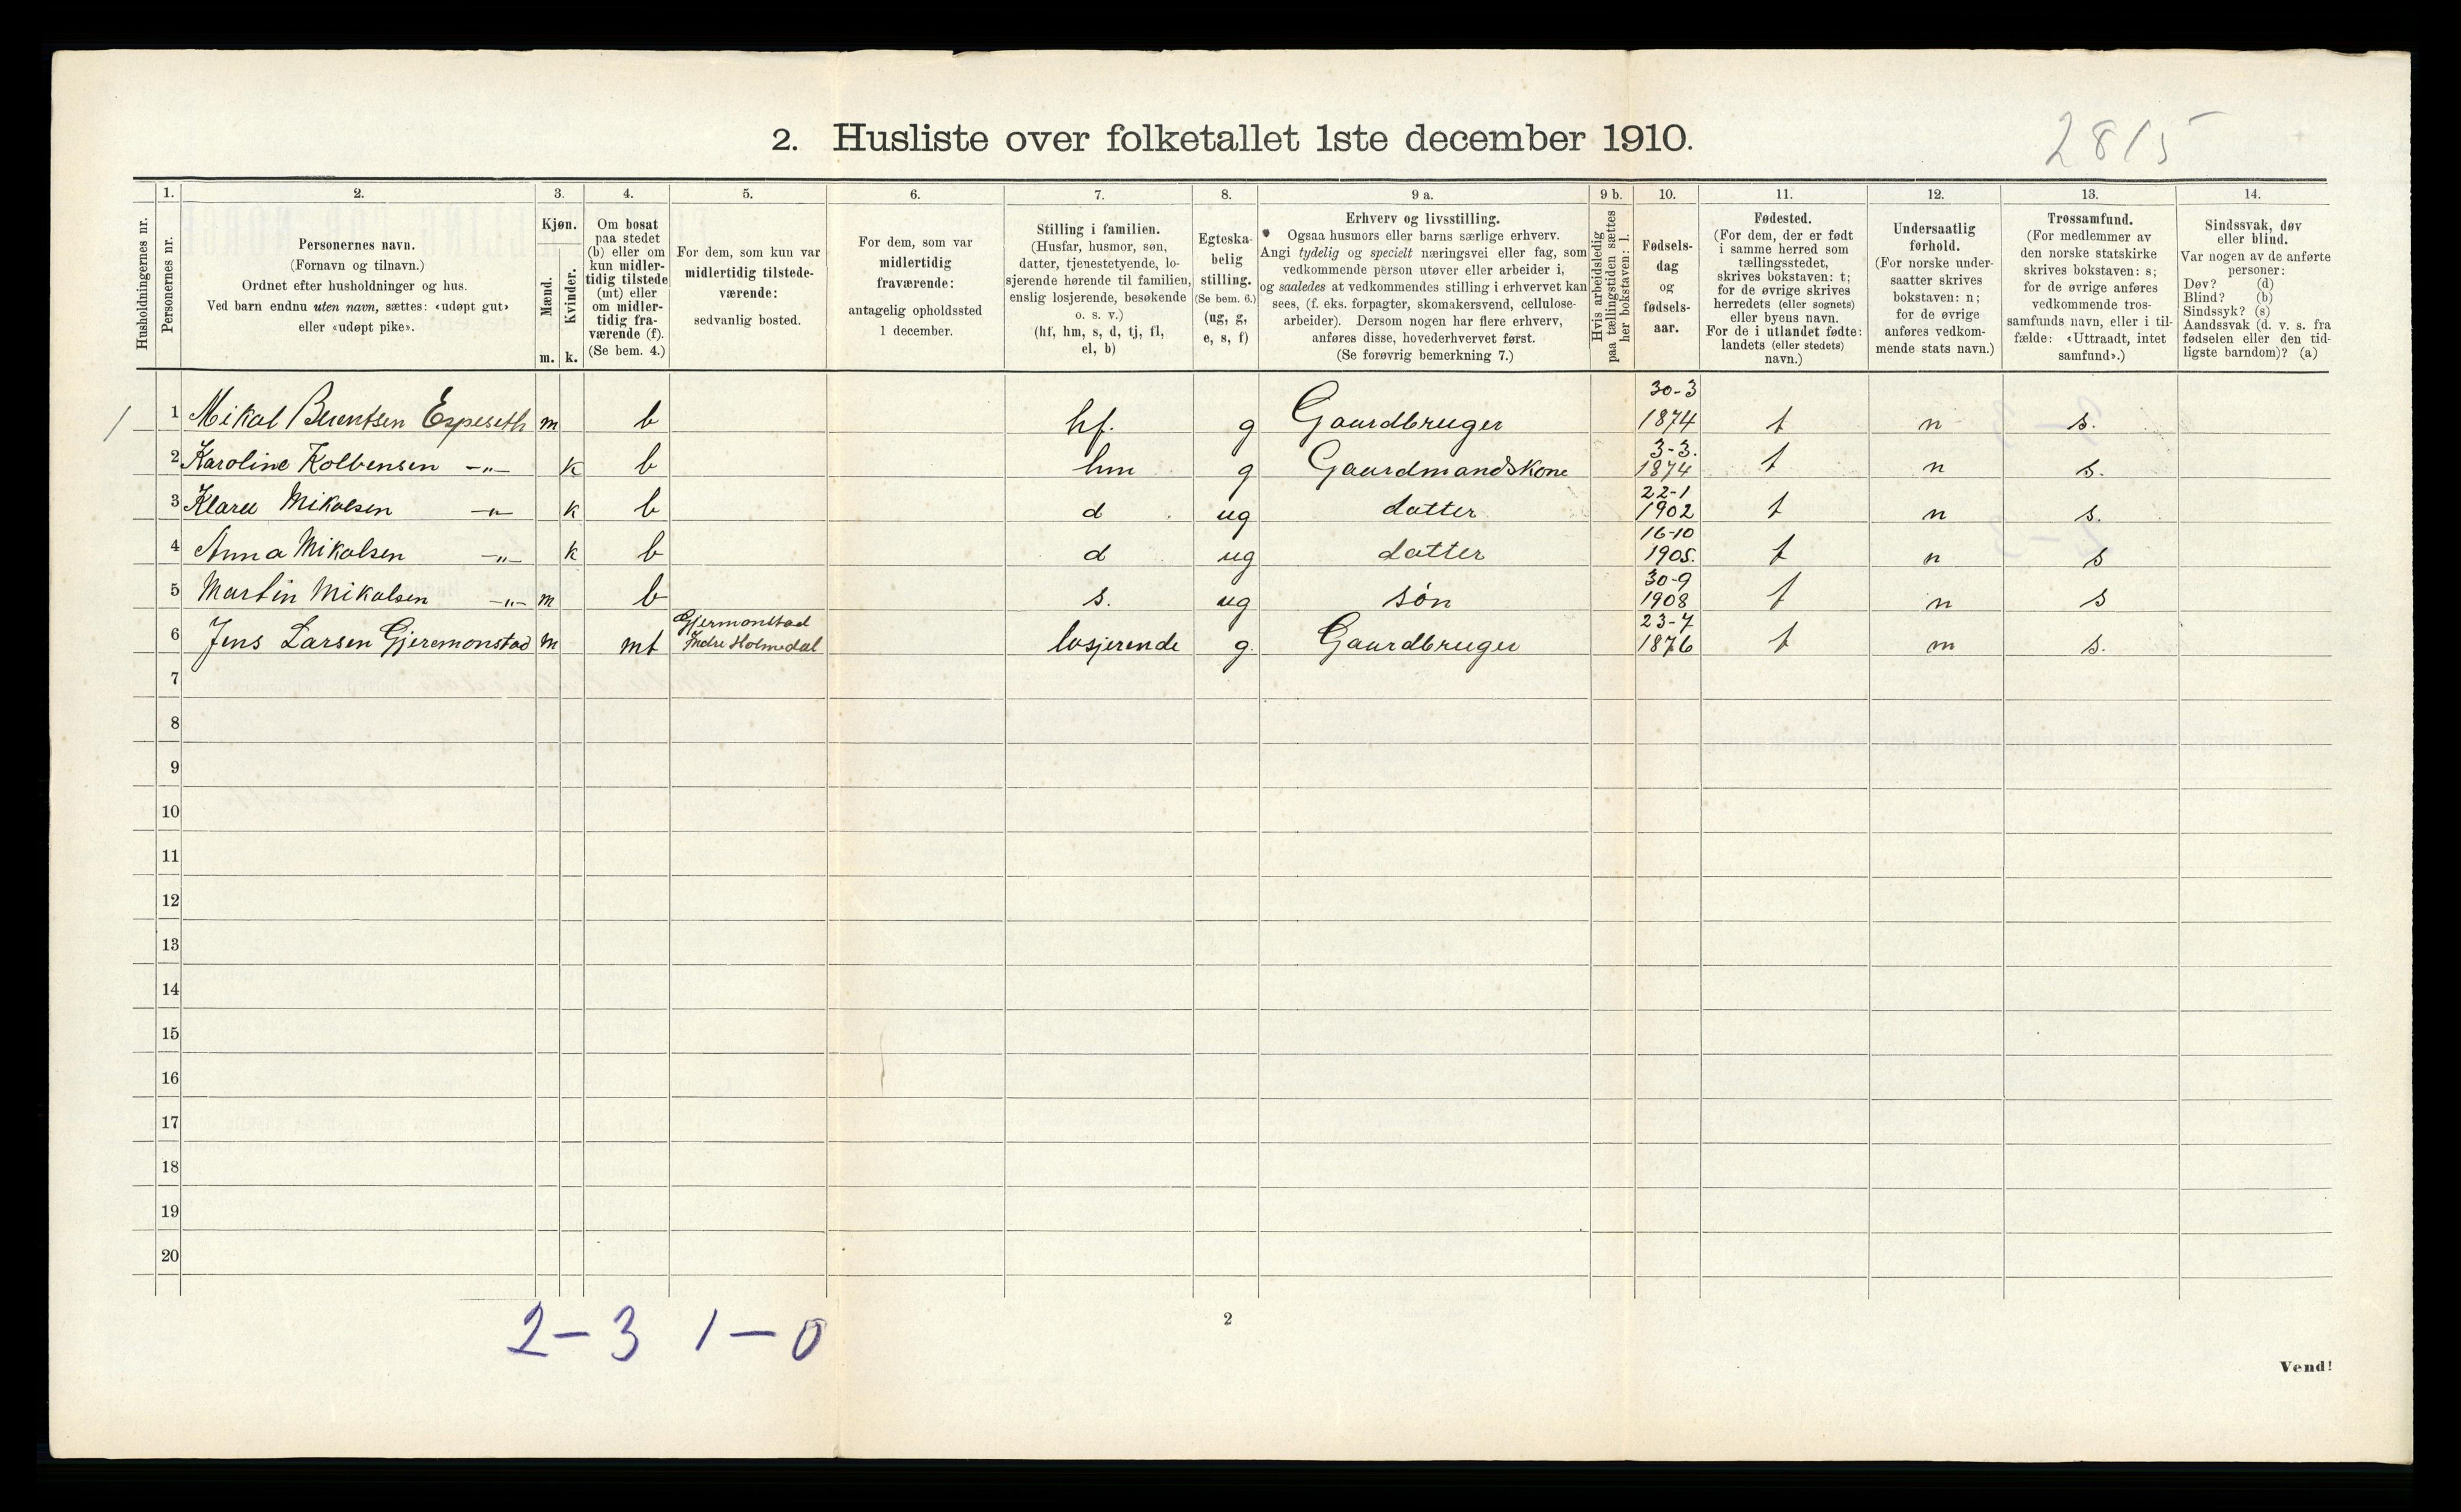 2. Husliste over folketallet 1ste december 1910.
2815
Husholdningernes nr.
1. Personernes nr.
2. Personernes navn.
(Fornavn og tilnavn.)
Ordnet efter husholdninger og hus.
Ved barn endnu uten navn, sættes: «udøpt gut»
eller «udøpt pike».
3. Kjøn.
Mænd. m.
Kvinder. k.
4. Om bosat
paa stedet
(b) eller om
kun midler-
tidig tilstede
(mt) eller
om midler-
tidig fra-
værende (f).
(Se bem. 4.)
5. For dem, som kun var
midlertidig tilstede-
værende:
sedvanlig bosted.
6. For dem, som var
midlertidig
fraværende:
antagelig opholdssted
1 december.
7. Stilling i familien.
(Husfar, husmor, søn,
datter, tjenestetyende, lo-
sjerende hørende til familien,
enslig losjerende, besøkende
o. s. v.)
(hf, hm, s, d, tj, fl,
el, b)
8. Egteska-
belig
stilling.
(Se bem. 6.)
(ug, g,
e, s, f)
9 a. Erhverv og livsstilling.
Ogsaa husmors eller barns særlige erhverv.
Angi tydelig og specielt næringsvei eller fag, som
vedkommende person utøver eller arbeider i,
og saaledes at vedkommendes stilling i erhvervet kan
sees, (f. eks. forpagter, skomakersvend, cellulose-
arbeider). Dersom nogen har flere erhverv,
anføres disse, hovederhvervet først.
(Se forøvrig bemerkning 7.)
9 b. Hvis arbeidsledig
paa tællingstiden sættes
her bokstaven: l.
10. Fødsels-
dag
og
fødsels-
aar.
11. Fødested.
(For dem, der er født
i samme herred som
tællingsstedet,
skrives bokstaven: t;
for de øvrige skrives
herredets (eller sognets)
eller byens navn.
For de i utlandet fødte:
landets (eller stedets)
navn.)
12. Undersaatlig
forhold.
(For norske under-
saatter skrives
bokstaven: n;
for de øvrige
anføres vedkom-
mende stats navn.)
13. Trossamfund.
(For medlemmer av
den norske statskirke
skrives bokstaven: s;
for de øvrige anføres
vedkommende tros-
samfunds navn, eller i til-
fælde: «Uttraadt, intet
samfund».)
14. Sindssvak, døv
eller blind.
Var nogen av de anførte
personer:
Døv? (d)
Blind? (b)
Sindssyk? (s)
Aandssvak (d. v. s. fra
fødselen eller den tid-
ligste barndom)? (a)
1 1 Mikal Berentsen Espeseth m b hf. g Gaardbruger 30-3 1874 t n s.
2 Karoline Kolbensen -"- k b hm g Gaardmandskone 3-3. 1874 t n s.
3 Klara Mikalsen -"- k b d ug datter 22-1 1902 t n s.
4 Anna Mikalsen -"- k b d ug datter 16-10 1905. t n s
5 Martin Mikalsen -"- m b s. ug søn 30-9 1908 t n s
6 Jens Larsen Gjeremonstad m mt Gjermonstad Indre Holmedal losjerende g. Gaardbruger 23-7 1876 t n s.
7
8
9
10
11
12
13
14
15
16
17
18
19
20
2-3 1-0
2
Vend!